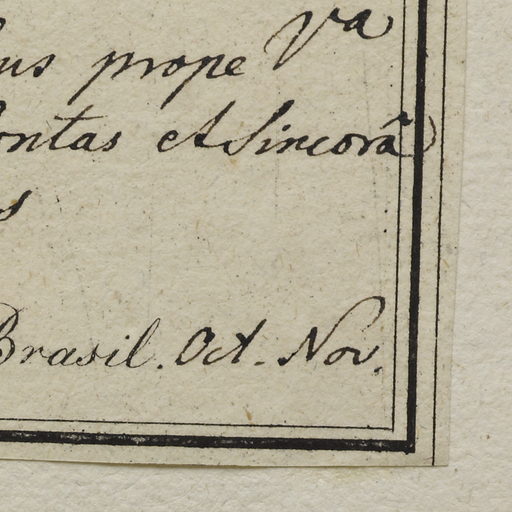 us prope Va
ontas et Sincorâ
s
Brasil. Oct. Nov.